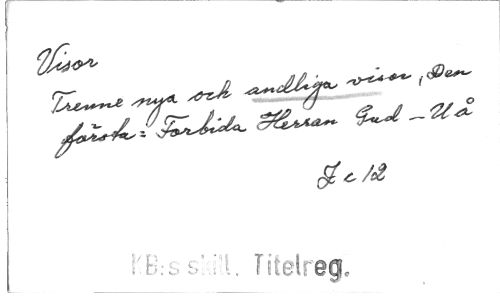 Visor
Trenne nya och andliga visor, Den
första: Forbida Herran Gud – U å
Z c 12
KB:s skill. Titelreg.